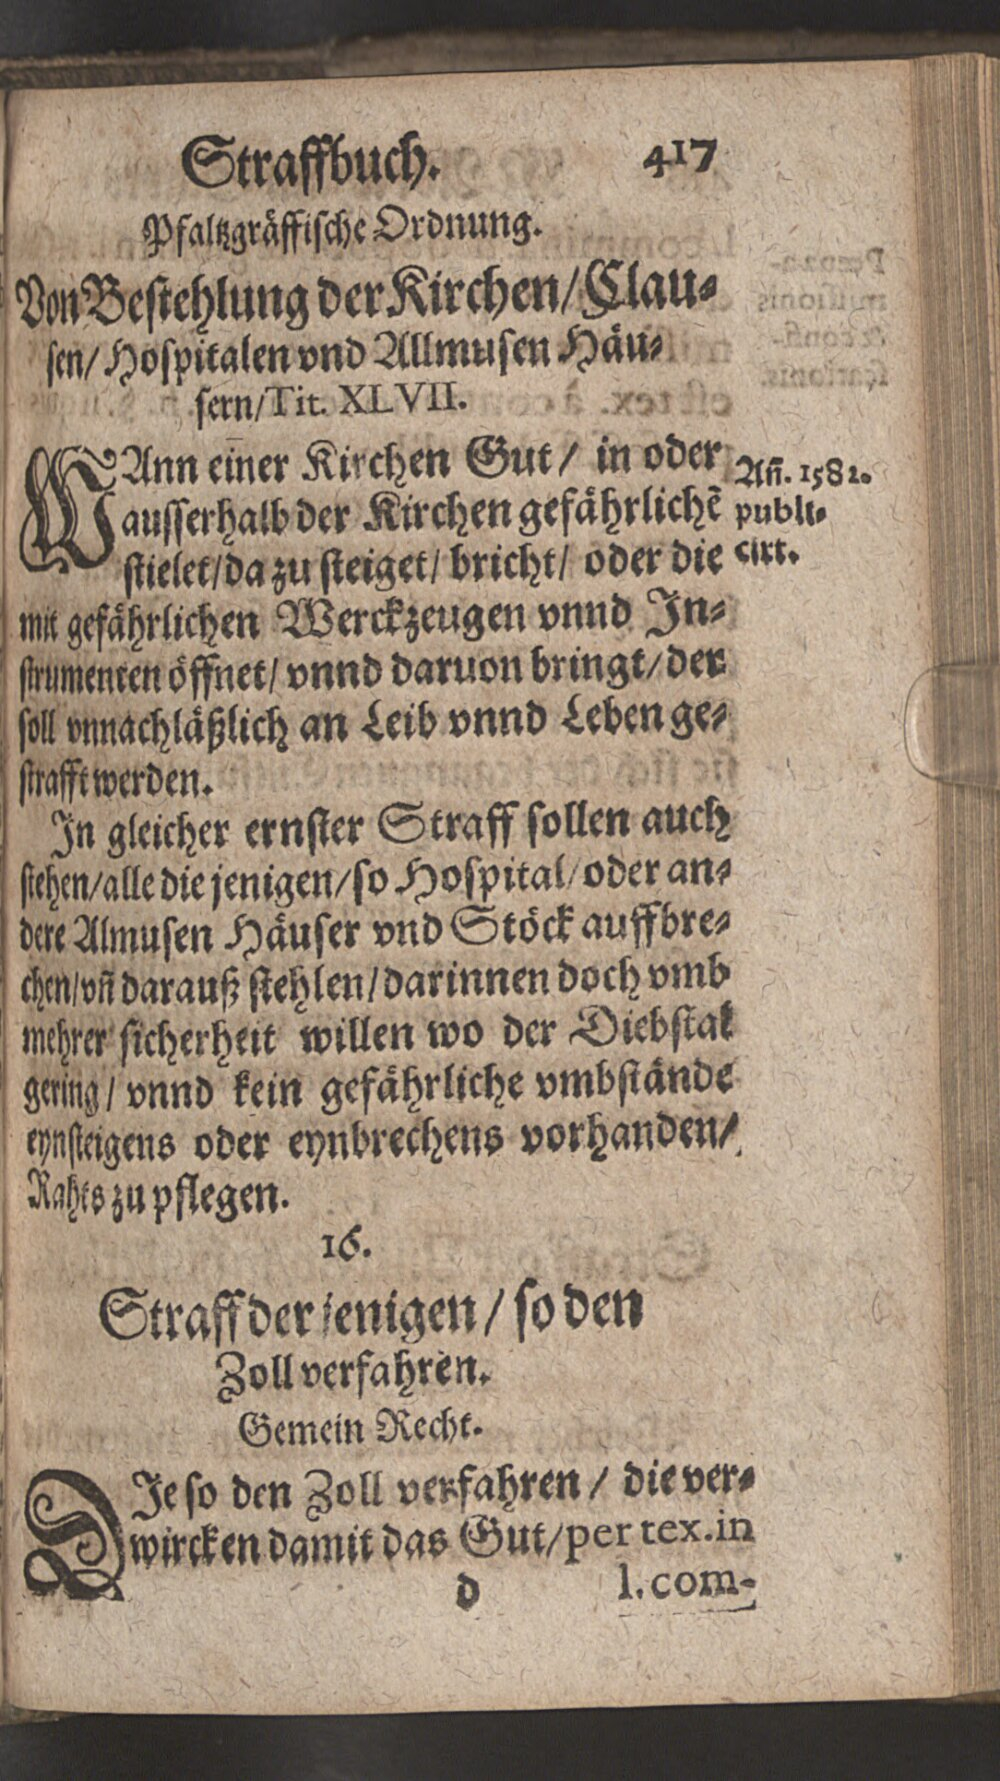 Straffbuch. 417
Pfaltzgräffische Ordnung.
Von Bestehlung der Kirchen/ Clau⸗
sen/ Hospitalen vnd Allmusen Häu⸗
sern/ Tit. XLVII.
WAnn einer Kirchen Gut / in oder
ausserhalb der Kirchen gefährlichẽ
stielet/ da zu steiget/ bricht/ oder die
mit gefährlichen Werckzeugen vnnd In⸗
strumenten öffnet/ vnnd daruon bringt/ der
soll vnnachläßlich an Leib vnnd Leben ge⸗
strafft werden.
Añ. 1582.
publi⸗
cirt.
In gleicher ernster Straff sollen auch
stehen/ alle die jenigen/ so Hospital/ oder an⸗
dere Almusen Häuser vnd Stöck auffbre⸗
chen/ vñ darauß stehlen/ darinnen doch vmb
mehrer sicherheit willen wo der Diebstal
gering / vnnd kein gefährliche vmbstände
eynsteigens oder eynbrechens vorhanden/
Rahts zu pflegen.
16.
Straff der jenigen / so den
Zoll verfahren.
Gemein Recht.
DJe so den Zoll verfahren / die ver⸗
wircken damit das Gut/ per tex. in
d l. com-